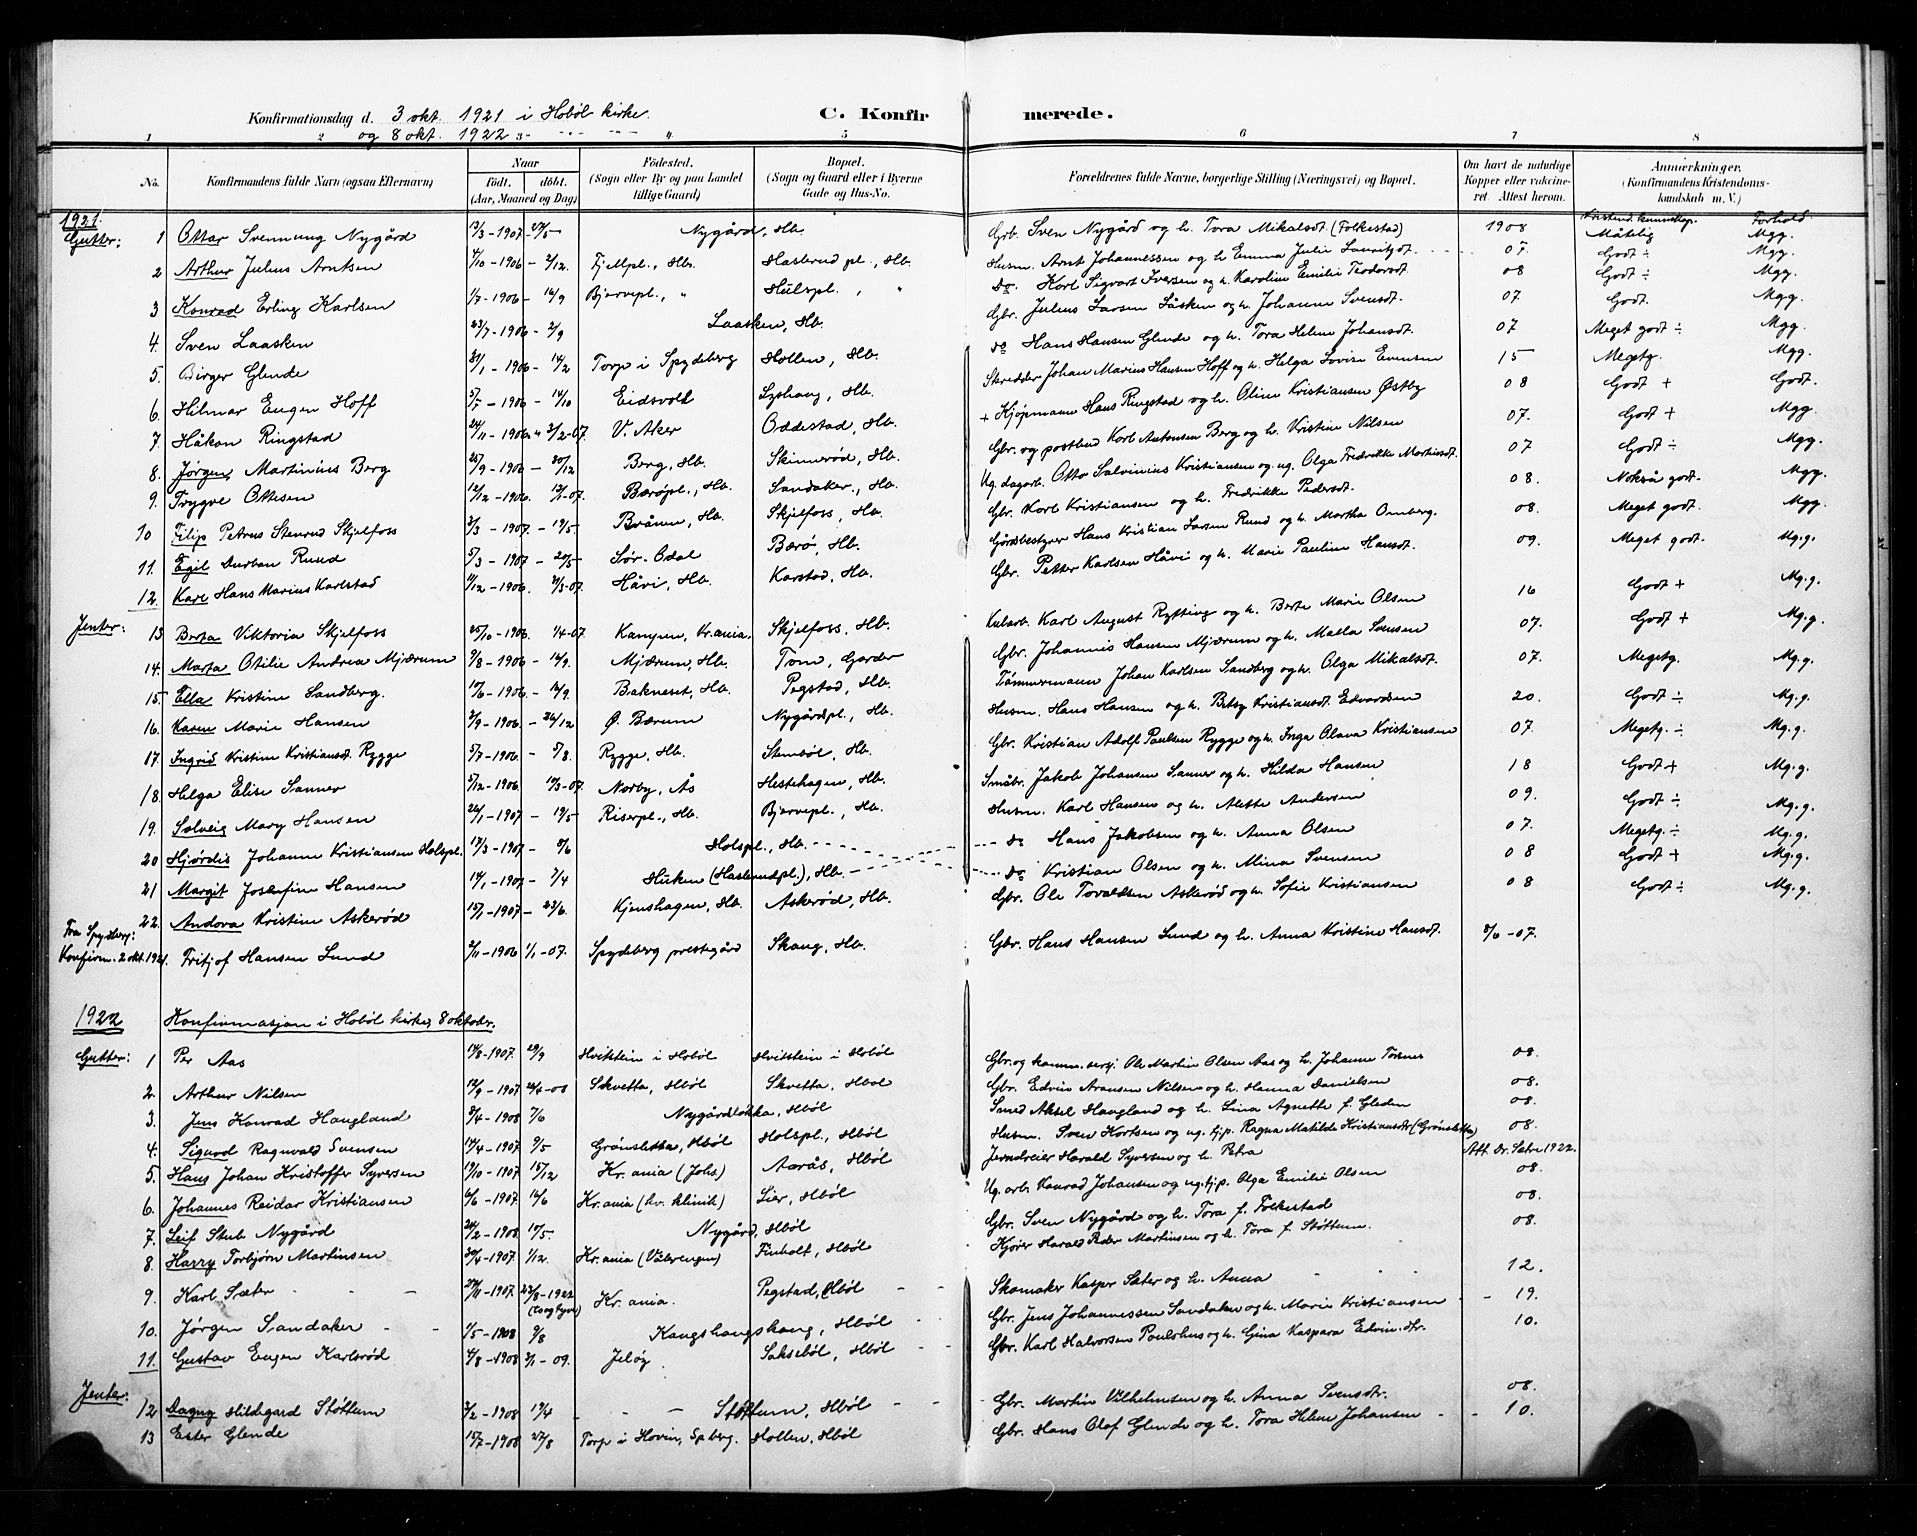 Konfirmationsdag d. 3 okt. 1921 i Hobøl kirke. C. Konfirmerede.
og 8 okt. 1922
1 2 3 4 5 6 7 8
No. Konfirmandens fulde Navn (ogsaa Efternavn) Naar født. døbt. (Aar, Maaned og Dag) Fødested. (Sogn eller By og paa Landet tillige Gaard) Bopæl. (Sogn og Gaard eller i Byerne Gade og Hus-No. Forældrenes fulde Navne, borgerlige Stilling (Næringsvei) og Bopæl. Om havt de naturlige Kopper eller vakcineret. Attest herom. Anmærkninger, (Konfirmandens Kristendomskundskab m. V.)
1921. Kristend. kunnskap. Forhold
Gutter: 1 Ottar Svennung Nygård 1907 Nygård, Hb. Grb. Sven Nygård og h. Tora Mikalsdt (Folkestad) 1908 Måtelig Mgg.
2 Arthur Julius Arntsen 4/10 - 1906 - 2/12. Fjellpl., Hb. Haslerud pl., Hb. Husm. Arnt Johannessen og h. Emma Julie Lauritzdt. 07. Godt ÷ Mgg.
3 Konrad Erling Karlsen 1/7 - 1906 - 16/9 Bjervepl., " Hulspl., " do. Karl Sigvart Iversen og h. Karoline Emilie Teodorsdt 08 Godt ÷ Mgg.
4. Sven Laasken 23/7 - 1906 - 2/9 Laasken, Hb. Gbr. Julius Larsen Låsken og h. Johanne Svensdt. 07. Godt. Mgg.
5. Birger Glende 1906 Torp i Spydeberg Hollen, Hb. do Hans Hansen Glende og h. Tora Helene Johansdt. 07 Meget godt ÷ Mgg.
6. Hilmar Eugen Hoff 5/7 - 1906 - 14/10 Eidsvold Lyshaug, Hb. Skredder Johan Marius Hansen Hoff og h. Helga Lovise Evensen 15 Megetg. Mgg.
7. Håkon Ringstad 24/11 - 1906 3/2-07. V. Aker Oddestad, Hb. + Kjøpmann Hans Ringstad og h. Oline Kristiansen Østby 08 Godt + Godt.
8. Jørgen Martinius Berg 25/9 - 1906 - 30/12 Berg, Hb. Skinnerød, Hb. Gbr. og postbud Karl Antonsen Berg og h. Kristine Nilsen 07. Godt + Mgg.
9. Trygve Ottesen 12/12 - 1906. Bærøpl., Hb. Sandaker., Hb. Ug. dagarb. Otto Salvinius Kristiansen og ug. Olga Fredrikke Martinsdt. 07 Godt ÷ Mgg.
10 Filip Petrus Stenrud Skjelfoss 3/3 - 1907 - 19/5. Brånen, Hb. Skjelfoss, Hb. Gbr. Karl Kristiansen og h. Fredrikke Pedersdt. 08. Nokså godt. Mgg.
11. Egil Durban Ruud 5/3 - 1907 - 20/5 Sør-Odal Bærø, Hb. Gårdsbestyrer Hans Kristian Larsen Ruud og h. Martha Omberg. 08. Meget godt. Mgg.
12. Karl Hans Marius Karlstad 1906. 3/3-07. Håvi, Hb. Karstad, Hb. Gbr. Petter Karlsen Håvi og h. Marie Pauline Hansdt. 09. Meget godt. Mg.g.
Jenter: 13 Berta Viktoria Skjelfoss 25/10 - 1906. 1/4-07 Kampen, Kr.ania. Skjelfoss, Hb. Karl August Rytting og h. Berte Marie Olsen 16 Godt + Mg.g.
14. Marta Otilie Andrea Mjærum 9/8 - 1906 - 16/9. Mjærum, Hb. Tom, Garder Gbr. Johannes Hansen Mjærum og h. Matla Svensen 07. Godt + Mg.g.
15. Ella Kristine Sandberg. 10/6 - 1906 - 16/9. Bakneset, Hb. Pegstad, Hb. Tømmermann Johan Karlsen Sandberg og h. Olga Mikalsdt. 07. Megetg. Mg.g.
16. Karen Marie Hansen 2/9 - 1906. - 26/12 Ø. Bærum Nygårdspl., Hb. Husm. Hans Hansen og h. Betsy Kristiansdt. Edvardsen 20. Godt ÷ Mg.g.
17. Ingrid Kristine Kristiansdt. Rygge 5/7 - 1906. - 5/8. Rygge, Hb. Stenbøl, Hb. Gbr. Kristian Adolf Paulsen Rygge og h. Inga Olava Kristiansen 07. Megetg. ÷ Mg.g.
18. Helga Elise Sanner 5/12 - 1906. Norby, Ås Hestehagen, Hb. Småbr. Jakob Johansen Sanner og h. Hilda Hansen 18 Godt + Mg.g.
19. Solveig Mary Hansen 26/1 - 1907 - 19/5 Riserpl., Hb. Bjervepl., Hb. Husm. Karl Hansen og h. Alette Andersen 09. Godt ÷ Mg.g.
20 Hjørdis Johanne Kristiansen Holspl. 1907 Holspl., Hb. do Hans Jakobsen og h. Anna Olsen 07. Megetg. ÷ Mg.g.
21 Margit Josefine Hansen 14/1 - 1907 - 7/4 Huken (Haslerudpl.), Hb. do Kristian Olsen og h. Mina Svensen 08 Godt + Mg.g.
22. Andora Kristine Askerød 15/1 - 1907 - 23/6. Kjenshagen, Hb. Askerød, Hb. Gbr. Ole Tovaldsen Askerød og h. Sofie Kristiansen 08 Godt ÷ Mg.g.
Fra Spydberg: Konfirm. 2 okt. 1921. Fritjof Hansen Lund 2/11 - 1906 1/1 - 07. Spydeberg prestegård Skaug, Hb. Gbr. Hans Hansen Lund og h. Anna Kristine Hansdt. 8/6 - 07.
1922 Konfirmasjon i Hobøl kirke, 8 oktober.
Gutter: 1 Per Aas 14/8 - 1907. 29/9 Hvitstein i Hobøl Hvitstein i Hobøl Gbr. og komm. Ole Martin Olsen Aas og h. Johanne Torsnes 08.
2. Arthur Nilsen 12/9 - 1907 26/4-08 Skvetta, Hbøl Skvetta, Hbøl Gbr. Edvin Aronsen Nilsen og h. Hanna Danielsen 08.
3. Jens Konrad Haugland 3/4 - 1908 7/6 Nygårdløkka, Hbøl Smed Aksel Haugland og h. Lina Agnette f. Gleden 08.
4. Sigurd Ragnvald Svensen 14/4 - 1907 9/5 Grønsletta, Hbøl Holspl., Hbøl Husm. Sven Kortsen og ug. tjp. Ragna Matilde Kristiansdt (Grønsletta) 08.
5. Hans Johan Kristoffer Syversen 19/10 - 1907 15/12 Kr.ania (Johs) Aarås, Hbøl Jerndreier Harald Syversen og h. Petra Att. Dr. Sætre 1922.
6. Johannes Reidar Kristiansen 6/6 - 1907. 16/6 Kr.ania (kv. klinik) Lier, Hbøl Ug. arb. Konrad Johansen og ug. tjp. Olga Emilie Olsen 08.
7. Leif Stub Nygård 24/2 - 1908 10/5 Nygård, Hbøl Gbr. Sven Nygård og h. Tora f. Folkestad 08.
8. Harry Torbjørn Martinsen 30/4 - 1907. 1/12. Kr.ania (Vålerengen) Finholt, Hbøl Kjører Harald Peder Martinsen og h. Tora f. Støttum. 08.
9. Karl Sæter 1907. Kr.ania. Pegstad, Hbøl Skomaker Kasper Sæter og h. Anna 12.
10. Jørgen Sandaker 1/5 - 1908 9/8 Kaugshaugskaug, Hbøl Gbr. Jens Johannessen Sandaker og h. Marie Kristiansen 19.
11. Gustav Eugen Karlsrød 4/8 - 1908 3/1 - 09. Jeløy Saksebøl, Hbøl Gbr. Karl Halvorsen Paulshus og h. Gina Kaspara Edvin.dtr. 10.
Jenter: 12 Dagny Hildegard Støttum 3/2 - 1908 19/4 Støttum, Hbøl Gbr. Martin Vilhelmsen og h. Anna Svensdtr. 08.
13 Ester Glende 15/7 - 1908 27/8 Torp i Hovin, Spberg. Hollen, Hbøl Gbr. Hans Olaf Glende og h. Tora Helene Johansen 10.